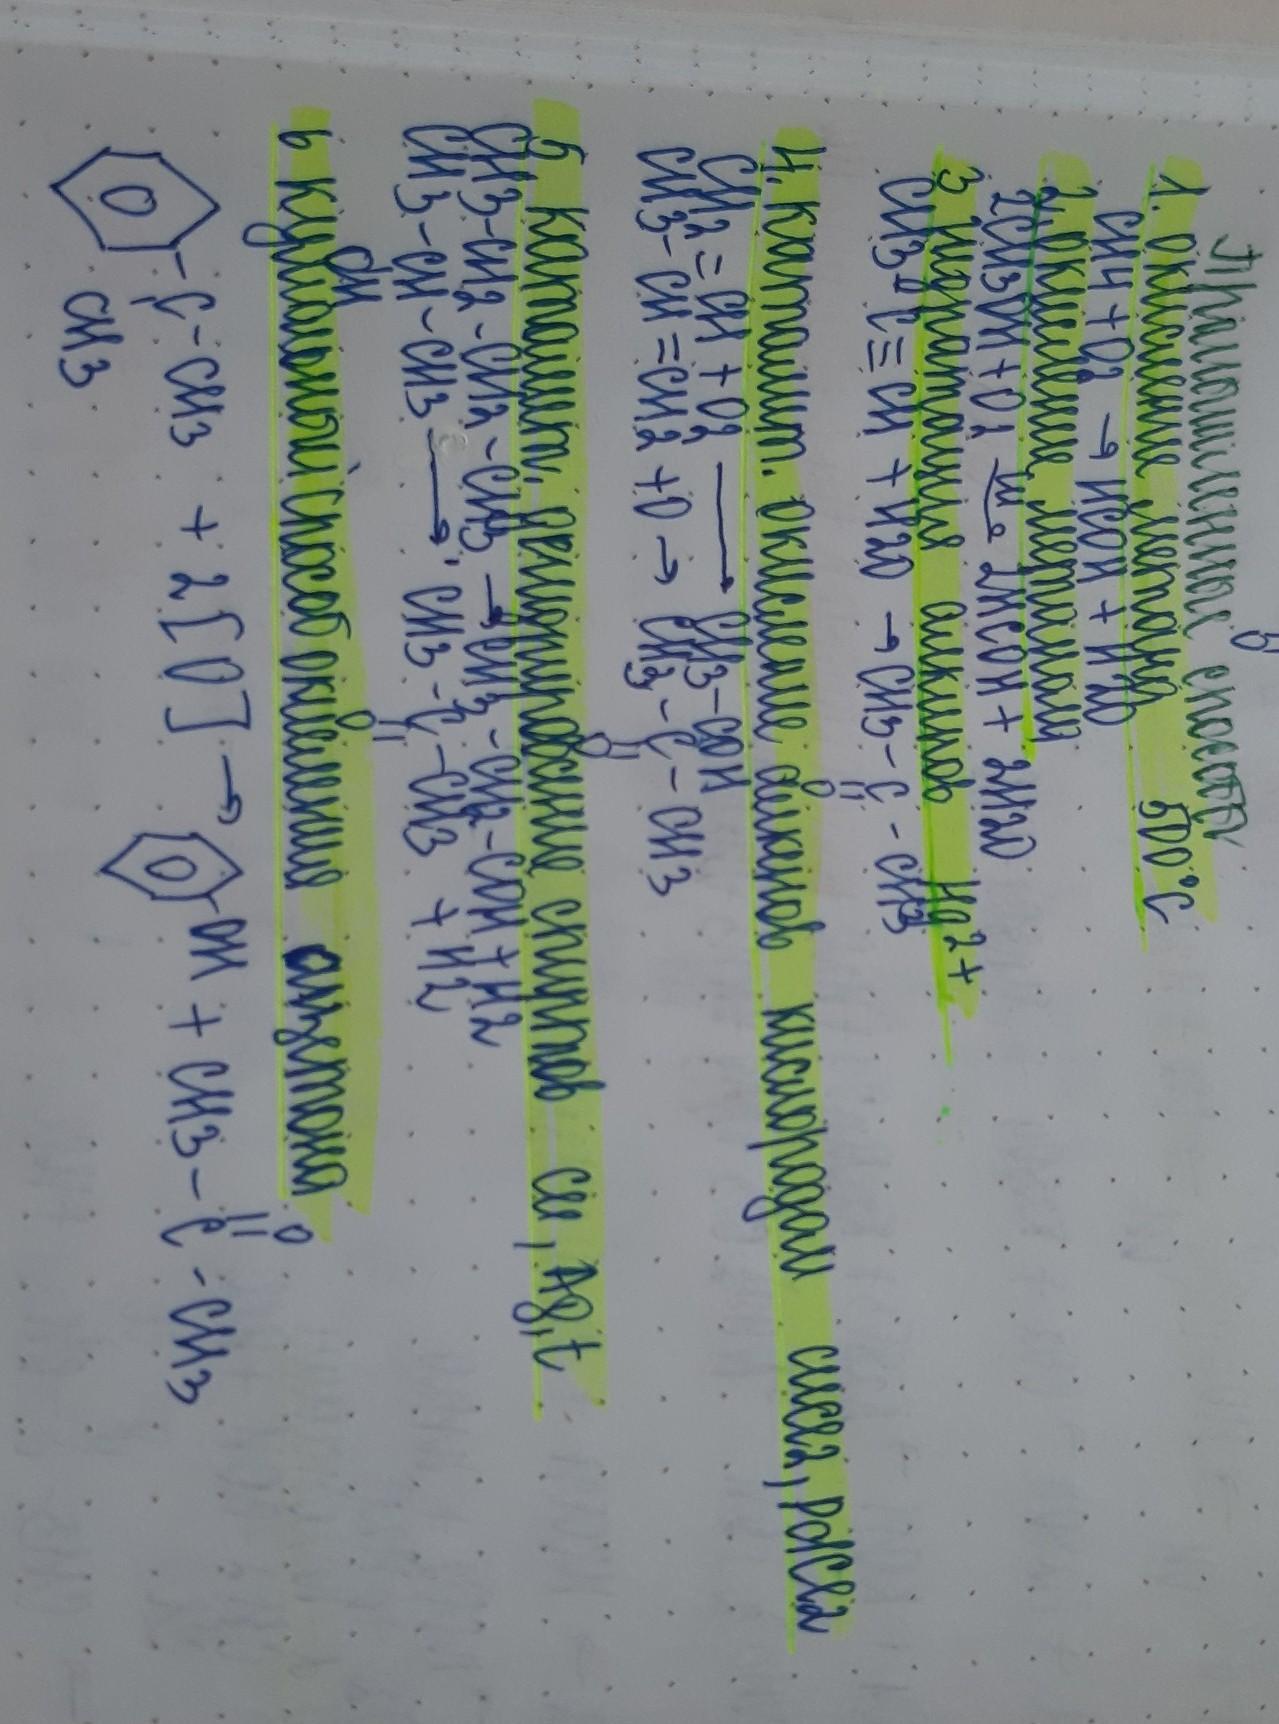 Промышленные способы
1. окисление метана 500°C
CH4 + O2 → HCOH + H2O
2. окисление метанола
2CH3OH + O2 → 2HCOH + 2H2O
3 гидратация алкинов Hg2+
O
CH3-C≡CH + H2O → CH3-C-CH3
4. каталит. окисление алкенов кислородом CuCl2, PdCl2
CH2=CH + O2 → CH3-COH
O
CH3-CH=CH2 + O → CH3-C-CH3
5 каталит. дегидрирование спиртов Cu, Ag, t
CH3-CH2-CH2-CH3 → CH3-CH2-COH + H2
CH3-CH-CH3 → CH3-C-CH3 + H2
OH O
6 кумольный способ окисления ацетона
O
C-CH3 + 2[O] → OH + CH3-C-CH3
CH3